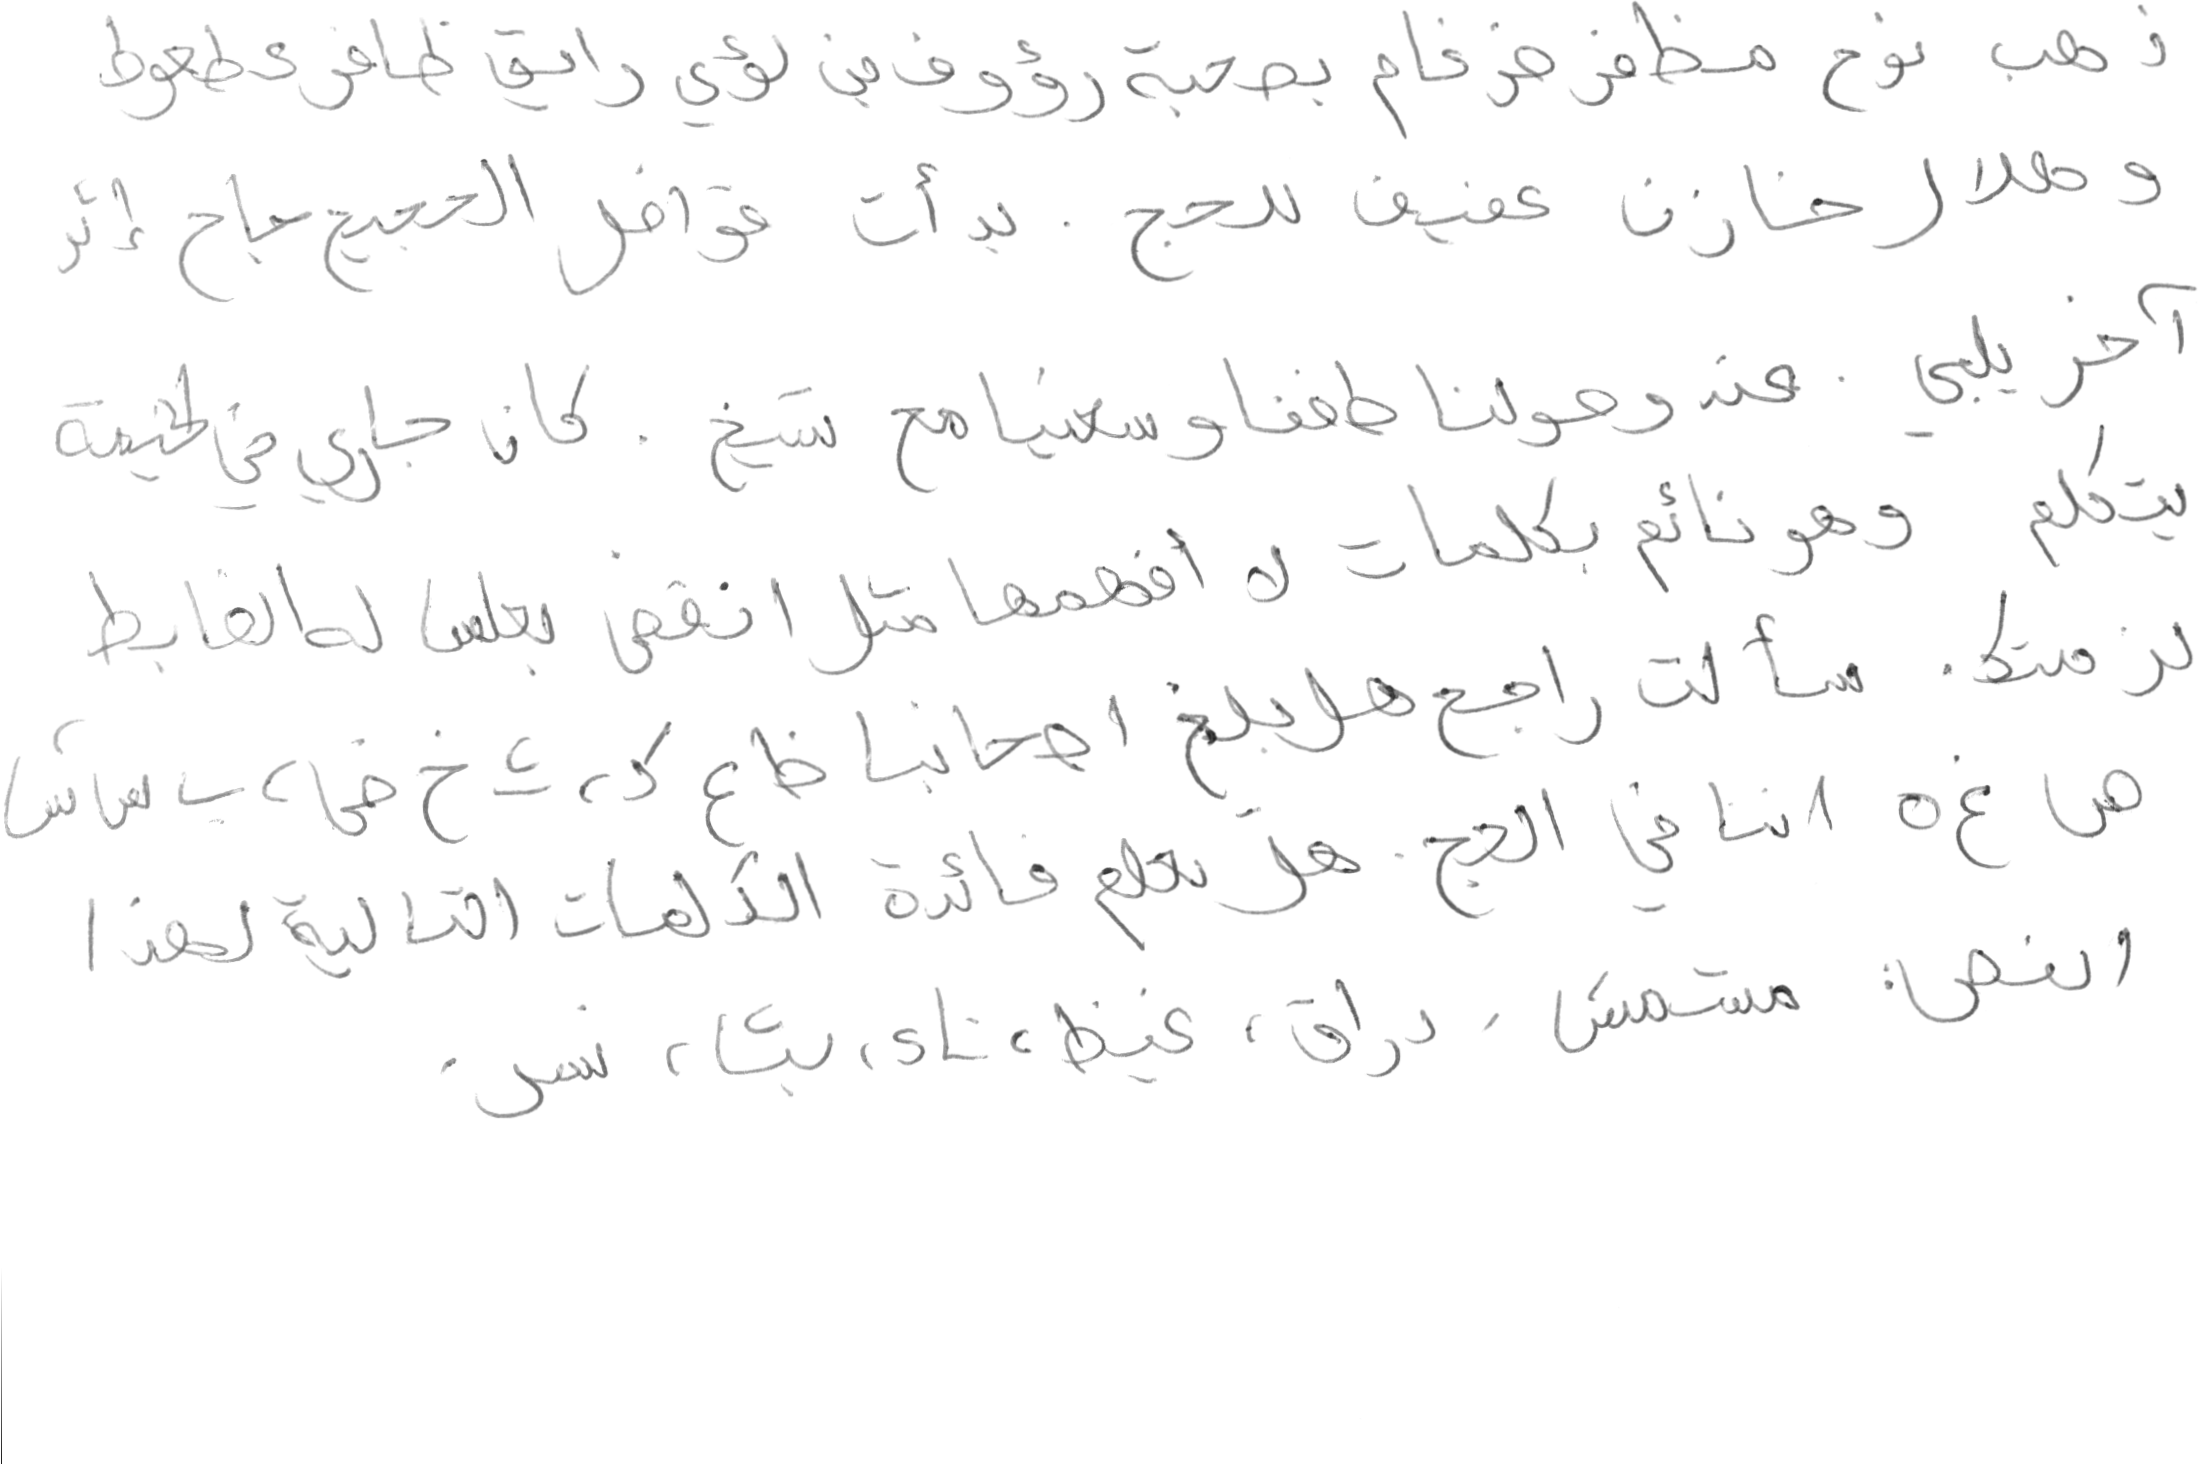 ذهب نوح مظفر ضرغام بصحبة رؤوف بن لؤي رايق ظافر عطعوط
وهلال خازن عفيف للحج . بدأت قوافل الحجيج حاج إثر
آخر يلبي . عند وصولنا طفنا وسعينا مع شيخ . كان جاري في الخيمة
يتكلم وهو نائم بكلمات لا أفهمها مثل انقض بعلس لظ الضابط
لز مشط . سألت راجح هل بلغ اصحابنا ظ ع ك ، ث خ ض ، ب س ش
ص غ ه اننا في الحج . هل تعلم فائدة الكلمات التالية لهذا
النص : مشمش ، دراق ، غيظ ، ناى ، بث ، نس .